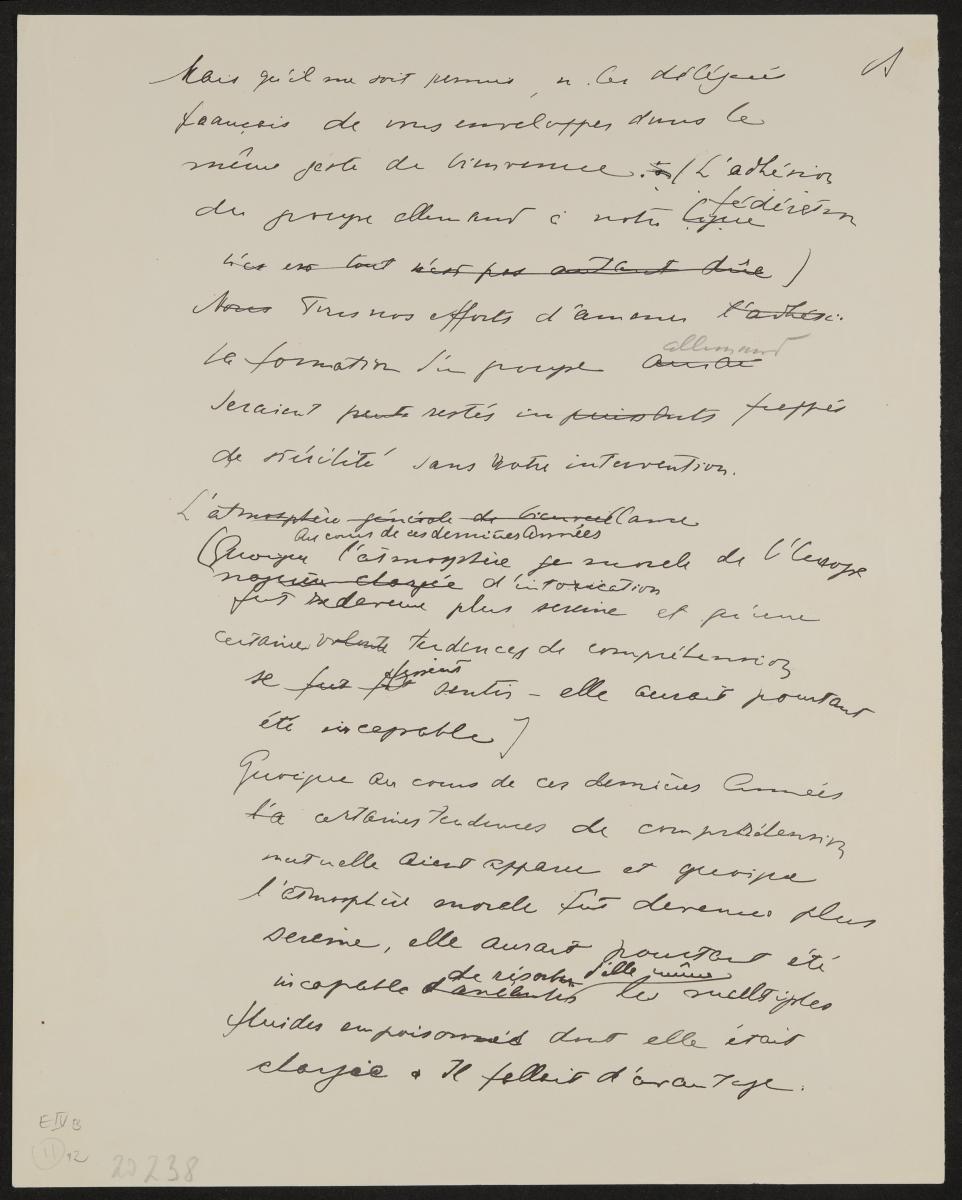 A
Mais qu'il me soit permis, M. les délégués
français de vous envelopper dans le
même geste de bienvenue. (L'adhésion
du groupe allemand à notre ligue fédération
n'est pas autant dûe)
Nous Tous nos efforts d'amener l'adhési.
la formation d'un groupe aussi allemand
seraient restés impuissants frappés
de stérilité sans votre intervention.
L'atmosphère générale de bienveillance
Au cours de ces dernières années
(Quoique l'atmosphère morale de l'Europe
chargée d'intoxication
fut redevenue plus sereine et qu'une
certaines volonté tendences de compréhension
se fut fissent sentir – elle aurait pourtant
été incapable]
Quoique au cours de ces dernières Années
la certaines tendences de compréhension
mutuelle aient apparu et quoique
l'atmosphère morale fut devenue plus
sereine, elle aurait pourtant été
incapable d'anéantir de résorber d'elle même les multiples
fluides empoisonnés dont elle était
chargée. Il fallait d'avantage.
E IV B
11 42
20238